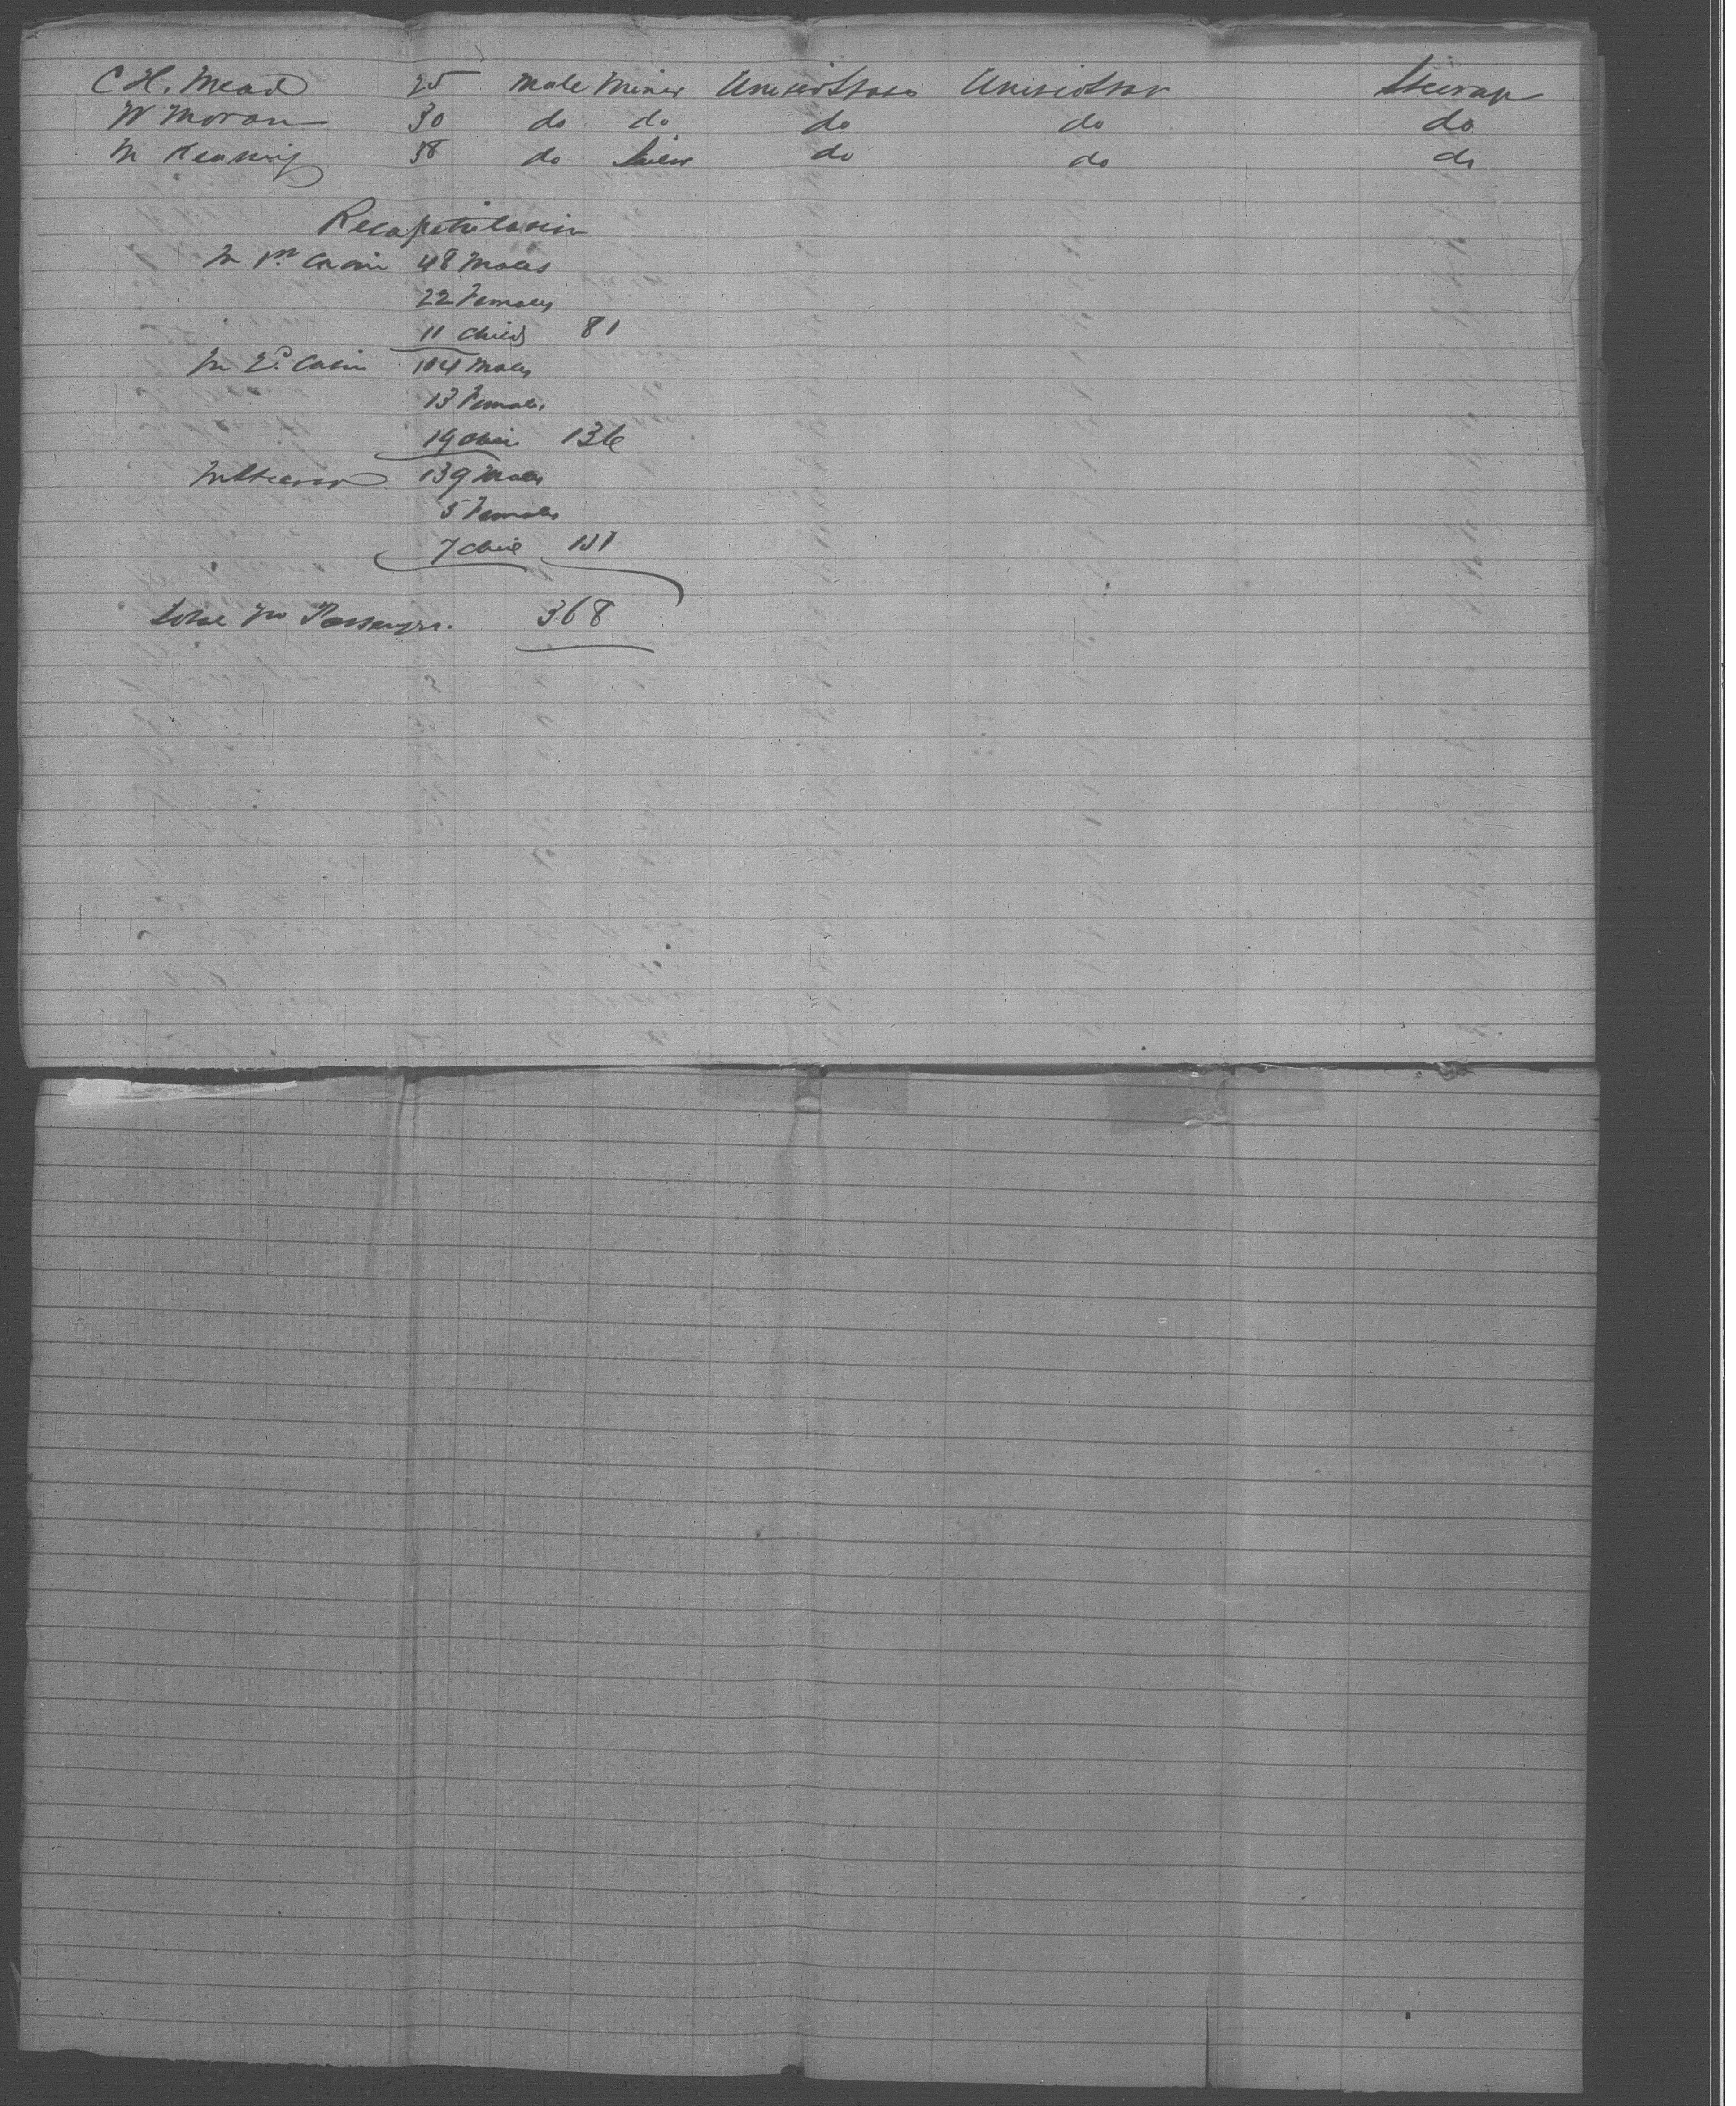 C H. Mead 25 male Miner United States United States Steerage
W Moran 30 do do do do do
M 58 do do do do
Recapitulation
In 1st Cabin 48 Males
22 Females
11 Child 81
In 2d Cabin 104 Males
13 Females
19 Chil 136
In Steerage 139 Males
5 Females
7 Chil 151
Total No Passengers. 368